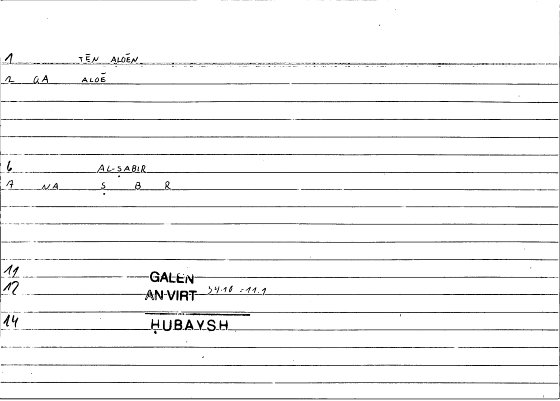 1 TĒN ALOĒN
2 GA ALOĒ
6 AL-ṢABIR
7 NA Ṣ B R
11 GALEN
12 AN-VIRT
14 ḤUBAYSH